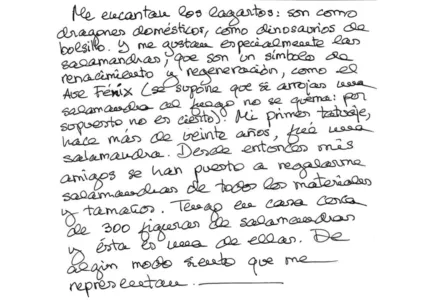 Me encantan los lagartos: son como
dragones domésticos, como dinosaurios de
bolsillo. Y me gustan especialmente las
salamandras, que son un símbolo de
renacimiento y regeneración, como el
Ave Fénix (se supone que si arrojas una
salamandra al fuego no se quema: por
supuesto no es cierto). Mi primer tatuaje,
hace más de veinte años, fué una
salamandra. Desde entonces mis
amigos se han puesto a regalarme
salamandras de todos los materiales
y tamaños. Tengo en casa cerca
de 300 figuras de salamandras
y ésta es una de ellas. De
algún modo siento que me
representan.